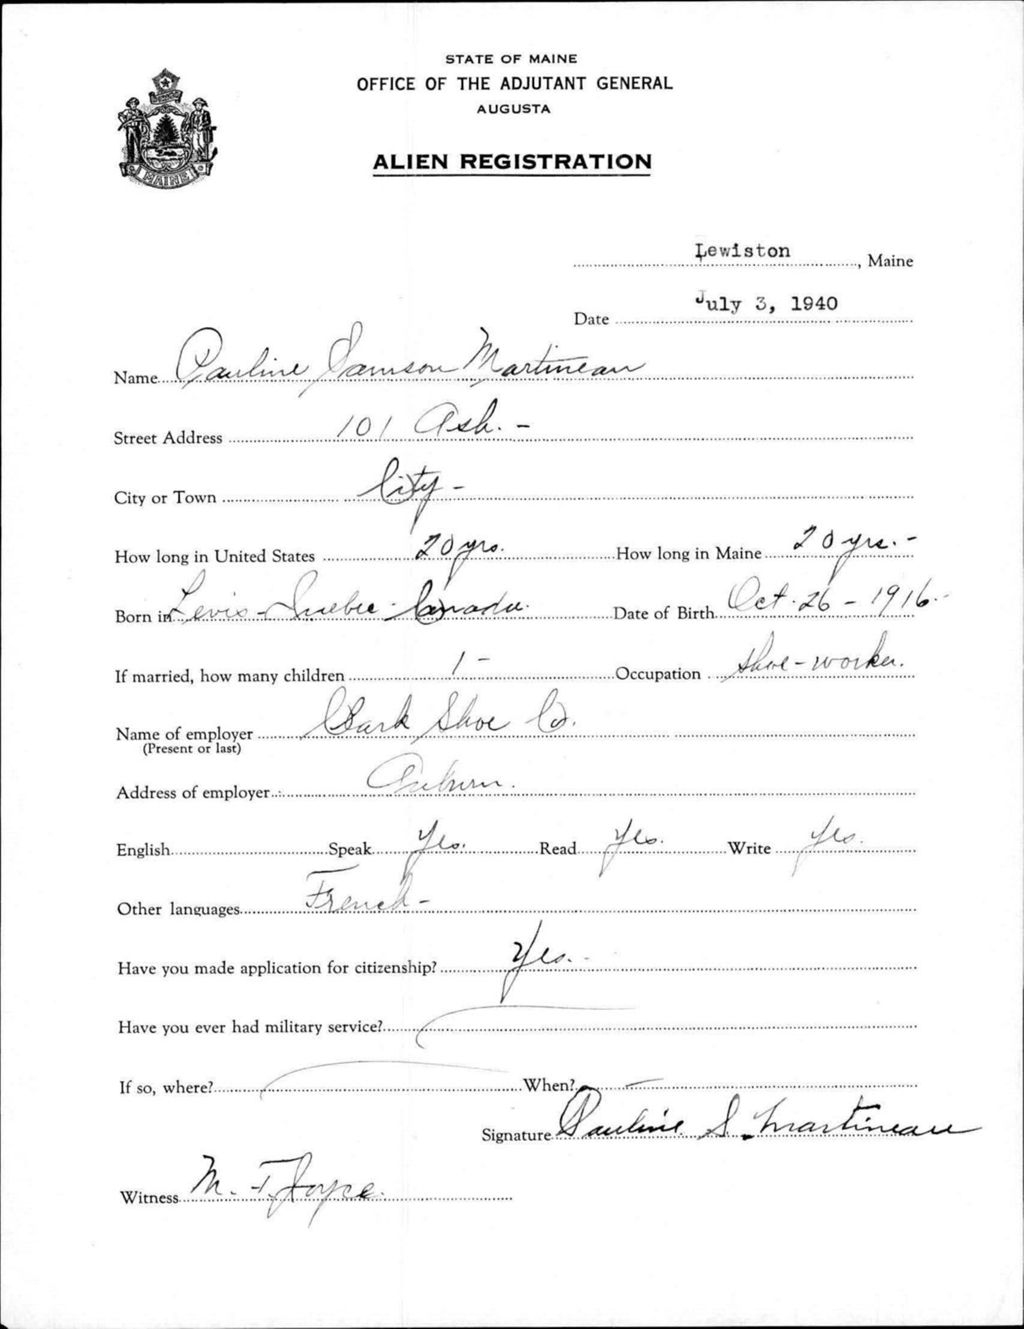 STATE OF MAINE
OFFICE OF THE ADJUTANT GENERAL
AUGUSTA
ALIEN REGISTRATION
MAINE
Lewiston, Maine
Date July 3, 1940
Name Pauline Samson Martineau
Street Address 101 Ash. -
City or Town City -
How long in United States 20 yrs. How long in Maine 20 yrs. -
Born in Levis - Quebec - Canada. Date of Birth Oct. 26 - 1916.
If married, how many children 1 - Occupation Shoe-worker.
Name of employer Clark Shoe Co.
(Present or last)
Address of employer Auburn.
English Speak Yes. Read Yes. Write Yes.
Other languages French -
Have you made application for citizenship? Yes. -
Have you ever had military service?
If so, where? When? -
Signature Pauline S. Martineau
Witness M. T. Joyce.